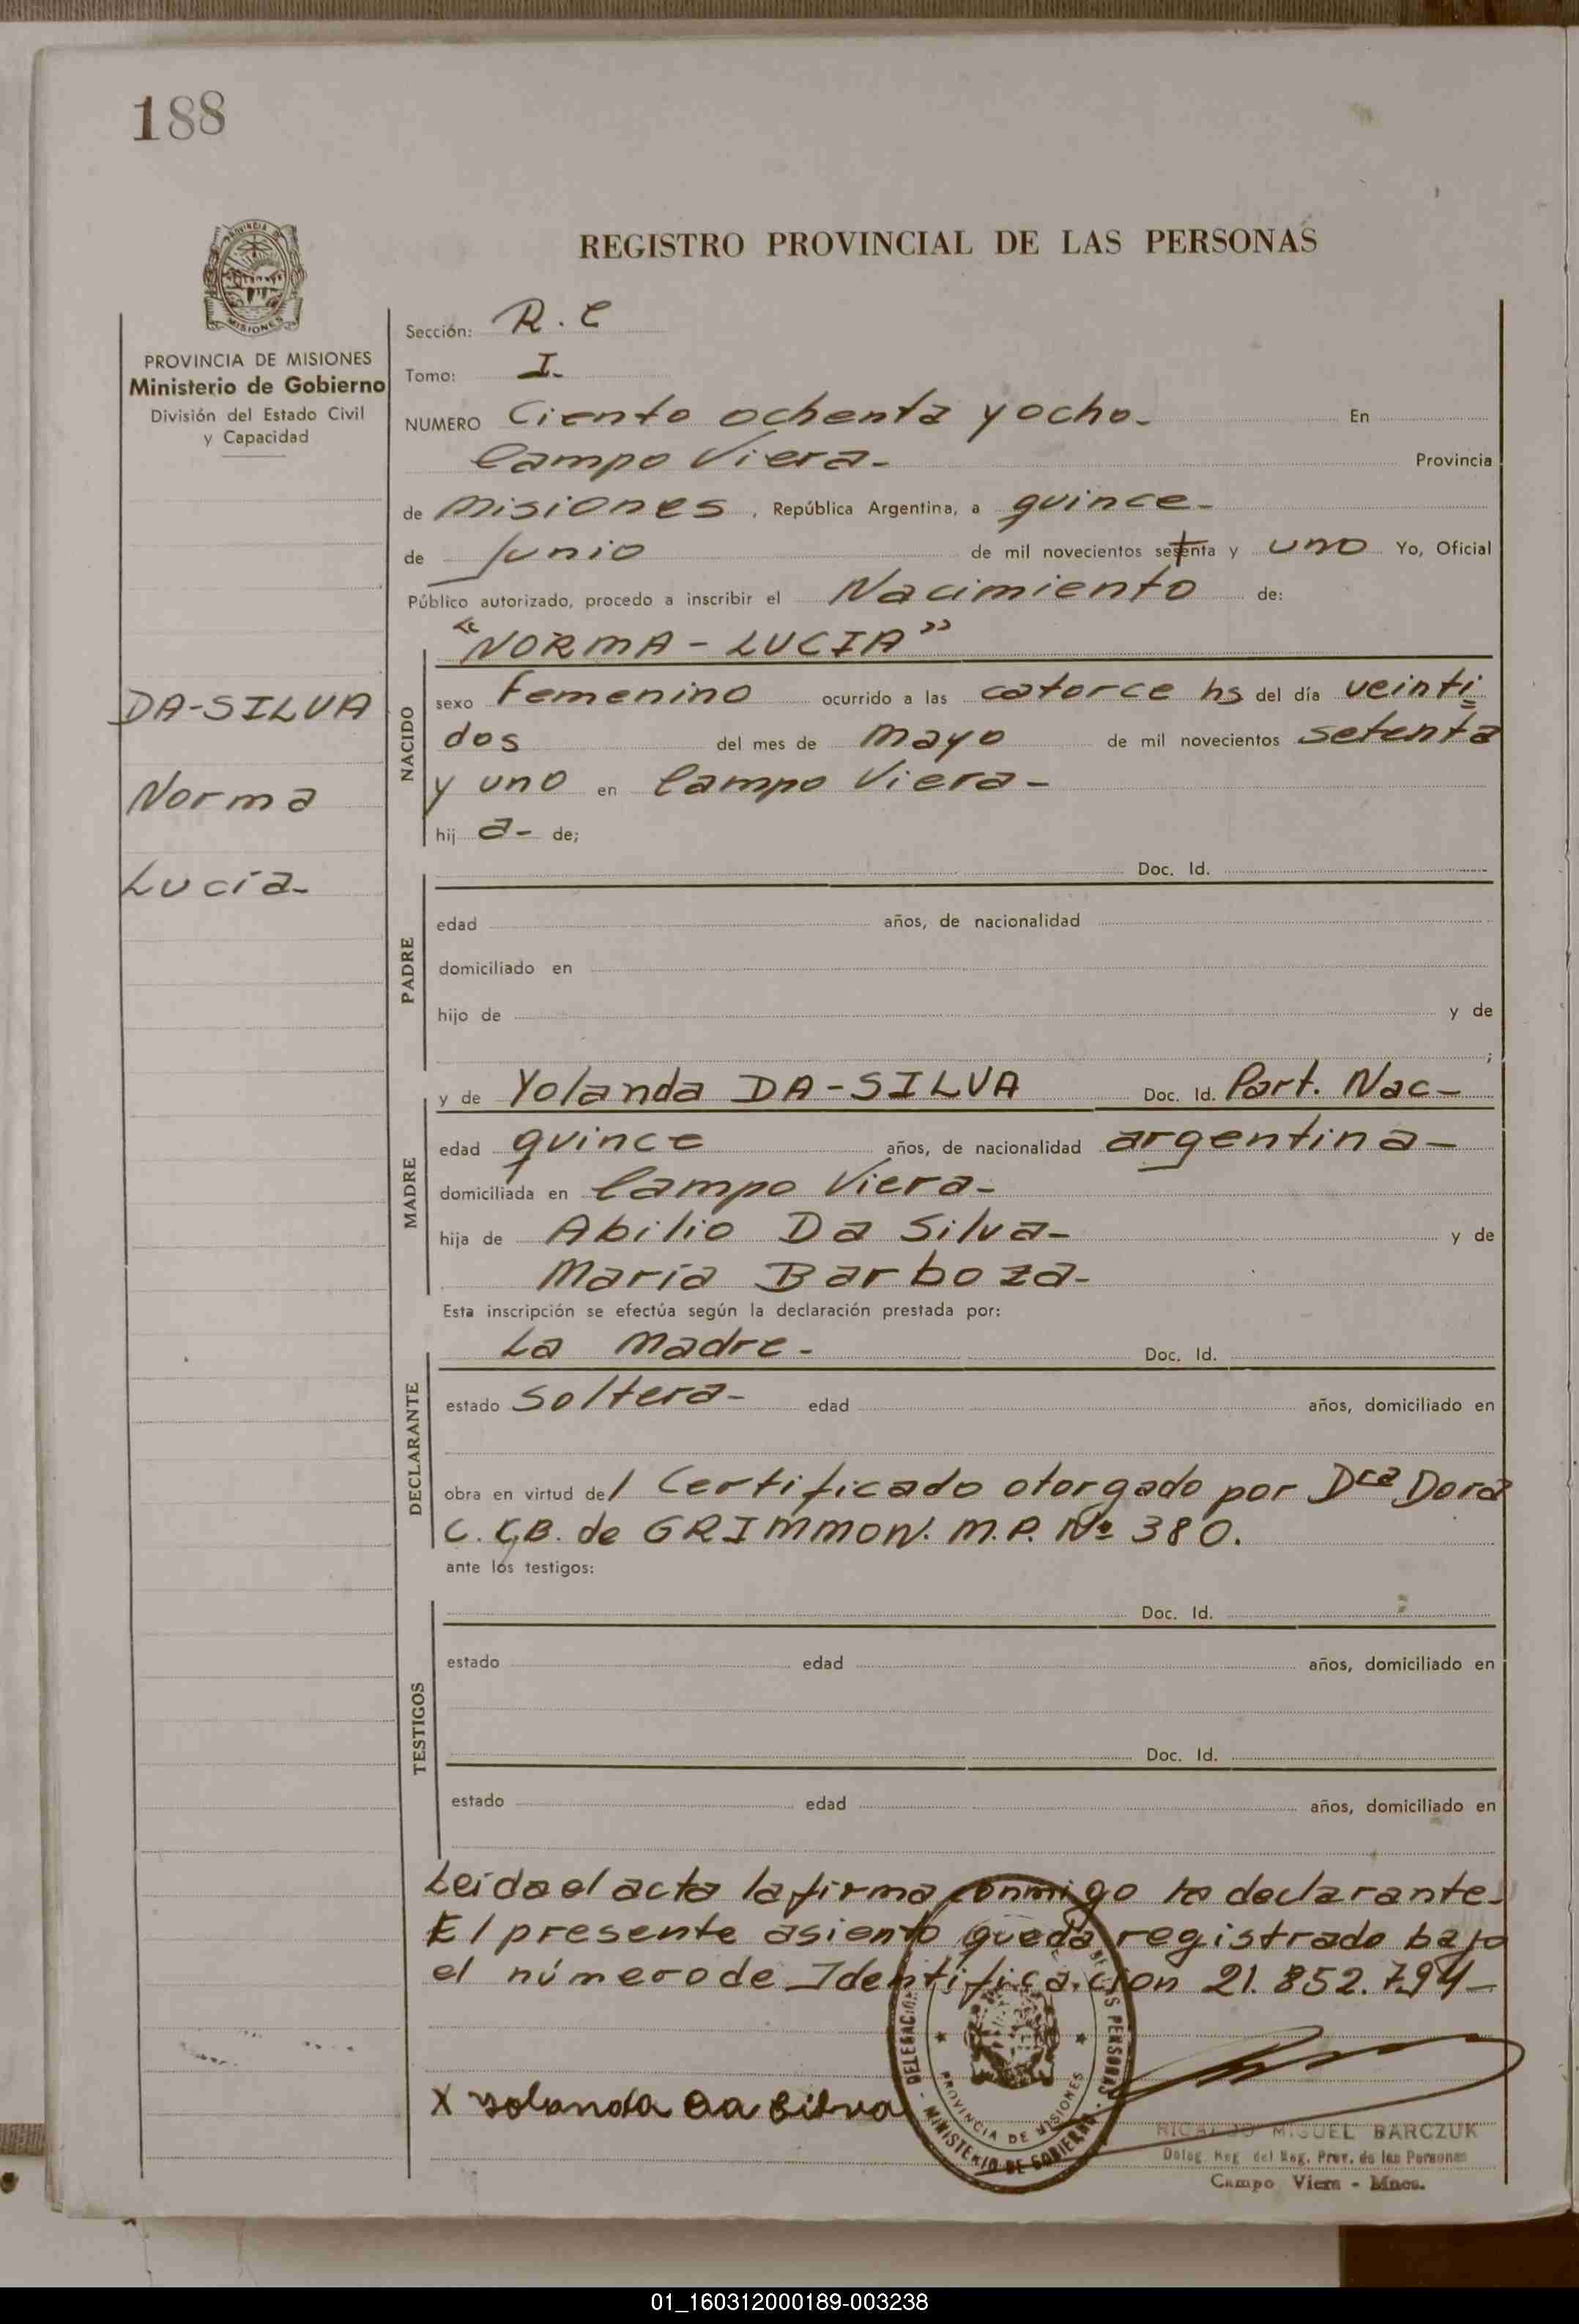 188
REGISTRO PROVINCIAL DE LAS PERSONAS
PROVINCIA DE MISIONES
Ministerio de Gobierno
División del Estado Civil
y Capacidad
DA-SILVA
Norma
Lucía-
Sección: R. C
Tomo: I-
NUMERO Ciento ochenta y ocho- En
Campo Viera- Provincia
de Misiones, República Argentina, a quince-
de Junio de mil novecientos setenta y uno Yo, Oficial
Público autorizado, procedo a inscribir el Nacimiento de:
"NORMA - LUCIA"
NACIDO
sexo Femenino ocurrido a las catorce hs del día veinti=
dos del mes de mayo de mil novecientos setenta
y uno en Campo Viera-
hij a- de;
PADRE
Doc. Id.
edad años, de nacionalidad
domiciliado en
hijo de y de
;
MADRE
y de Yolanda DA-SILVA Doc. Id. Part. Nac-
edad quince años, de nacionalidad argentina-
domiciliada en Campo Viera-
hija de Abilio Da Silva- y de
María Barboza-
Esta inscripción se efectúa según la declaración prestada por:
DECLARANTE
La Madre- Doc. Id.
estado Soltera- edad años, domiciliado en
obra en virtud del Certificado otorgado por Dra Dora
C. G.B. de GRIMMON. M.P. Nº 380.
ante los testigos:
TESTIGOS
Doc. Id.
estado edad años, domiciliado en
Doc. Id.
estado edad años, domiciliado en
Leída el acta la firma conmigo la declarante-
El presente asiento queda registrado bajo
el número de Identificación 21.852.794-
X Yolanda Da Silva
PROVINCIA DE MISIONES
MINISTERIO DE GOBIERNO
RICARDO MIGUEL BARCZUK
Deleg. Reg. del Reg. Prov. de las Personas
Campo Viera - Mnes.
01_160312000189-003238